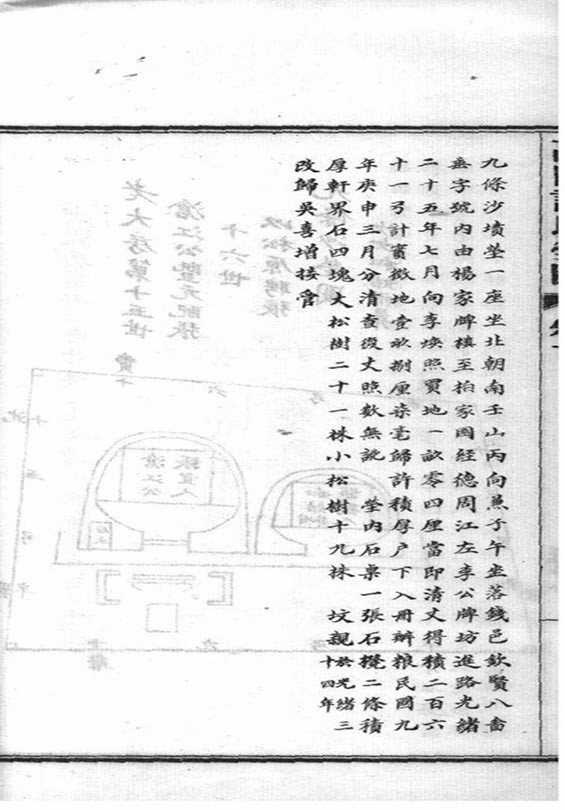 九條沙墳塋一座坐北朝南壬山丙向兼子午坐落錢邑欽賢八啚
垂字號內由楊家牌樓至柏家園經德周江左李公牌坊進路光緒
二十五年七月向李煥照買地一畝零四厘當即清丈得積二百六
十一弓計實徵地壹畝捌厘柒毫歸許積厚户下入冊辦粮民國九
年庚申三月分清查復丈照數無訛 塋內石桌一張石櫈二條積
厚軒界石四塊大松樹二十一株小松樹十九株 坟親於光緒三十四年
改歸吳喜增接管